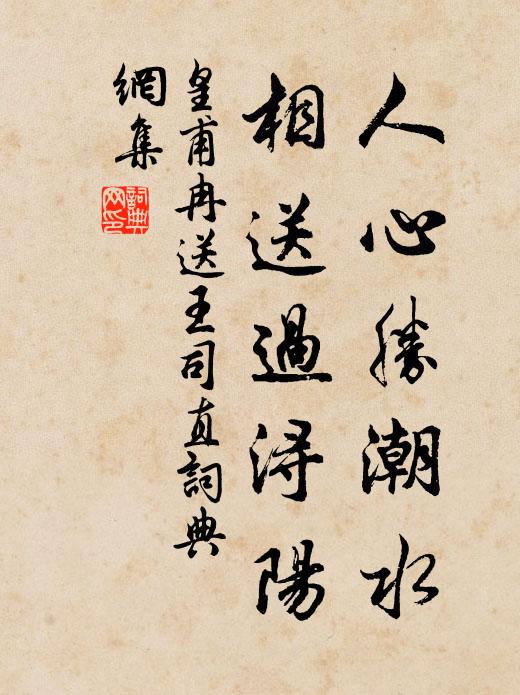 人心勝潮水
相送過潯陽
皇甫冉送王司直詞典
網集
詞典
网印